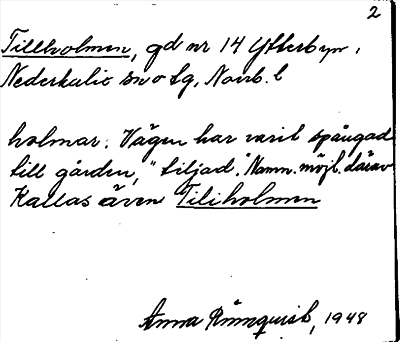 2
Tillholmen, gd nr 14 Ytterbyn,
Nederkalix sn o tg, Norrb. l
holmar. Vägen har varit spångad
till gården, "tiljad". Namn. möjl. därav
Kallas även Tiliholmen
Anna Rönnquist, 1948